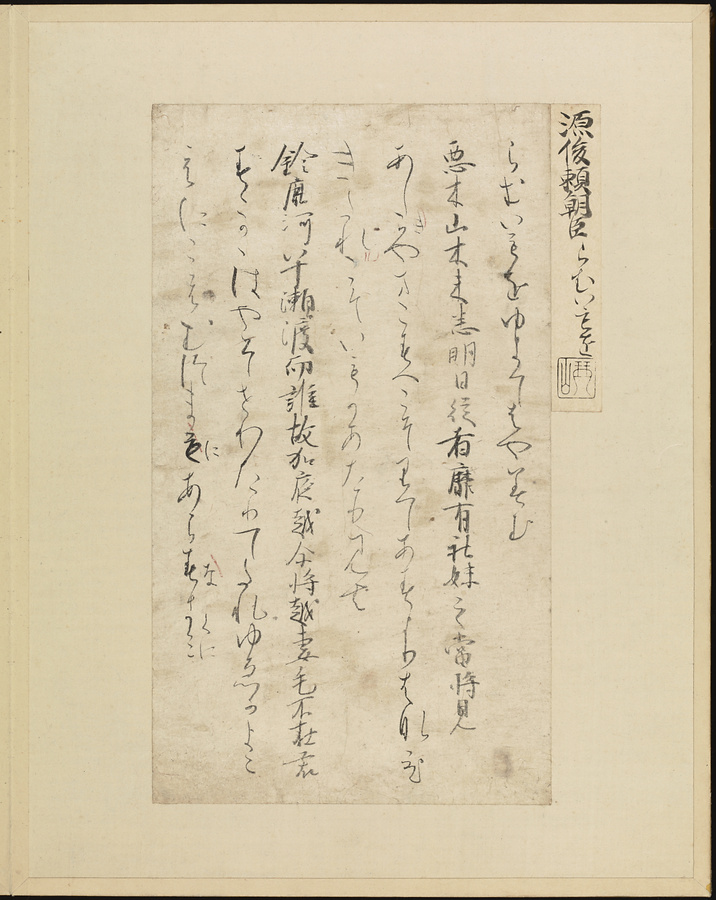 源俊頼朝臣 らむいもを
らむいもをゆきてはやみむ
悪木山木末志明日従者靡有社妹之當将見
あしきやまこすゑこそりてあすよりはなひ
きたれこそいもかあたりみむ
鈴鹿河八十瀬渡而誰故加夜越今将越妻毛不在君
すゝかゝはやそせわたりてたれゆゑかよこ
えにこえむつまもあら